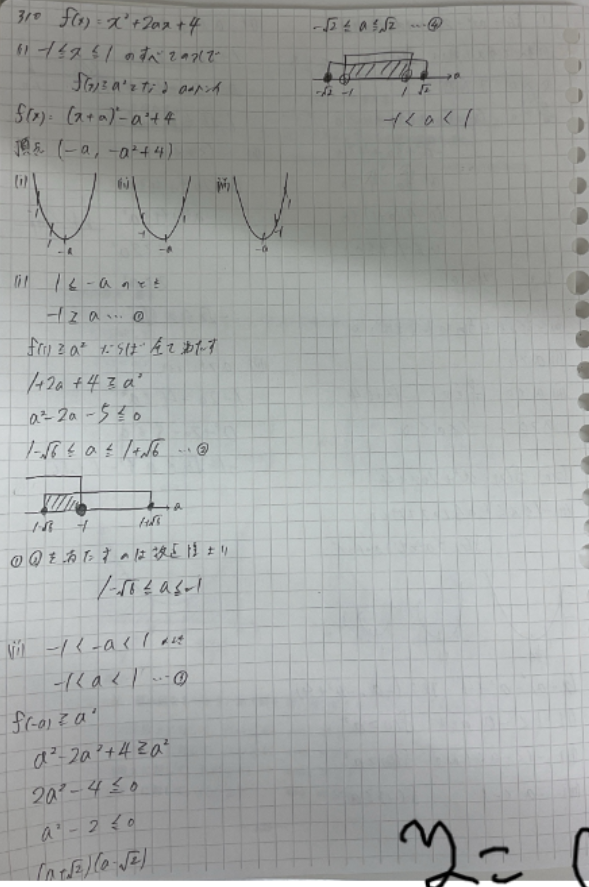 310 f(x) = x²+2ax+4
(1) -1≦x≦1 のすべてのxで
f(x)≧a²となるaの
f(x) = (x+a)²-a²+4
頂点 (-a, -a²+4)
(i) (ii) (iii)
-1 1 -a -1 1 -a -1 1 -a
(i) 1≦-a のとき
-1≧a … ①
f(1)≧a² ならば 全て満たす
1+2a+4≧a²
a²-2a-5≦0
1-√6≦a≦1+√6 … ②
1-√6 -1 1+√6 a
①②を満たすのは数直線より
1-√6≦a≦-1
(ii) -1<-a<1 のとき
-1<a<1 … ③
f(-a)≧a²
a²-2a²+4≧a²
2a²-4≦0
a²-2≦0
(a+√2)(a-√2)
-√2≦a≦√2 … ④
-√2 -1 1 √2 a
-1<a<1